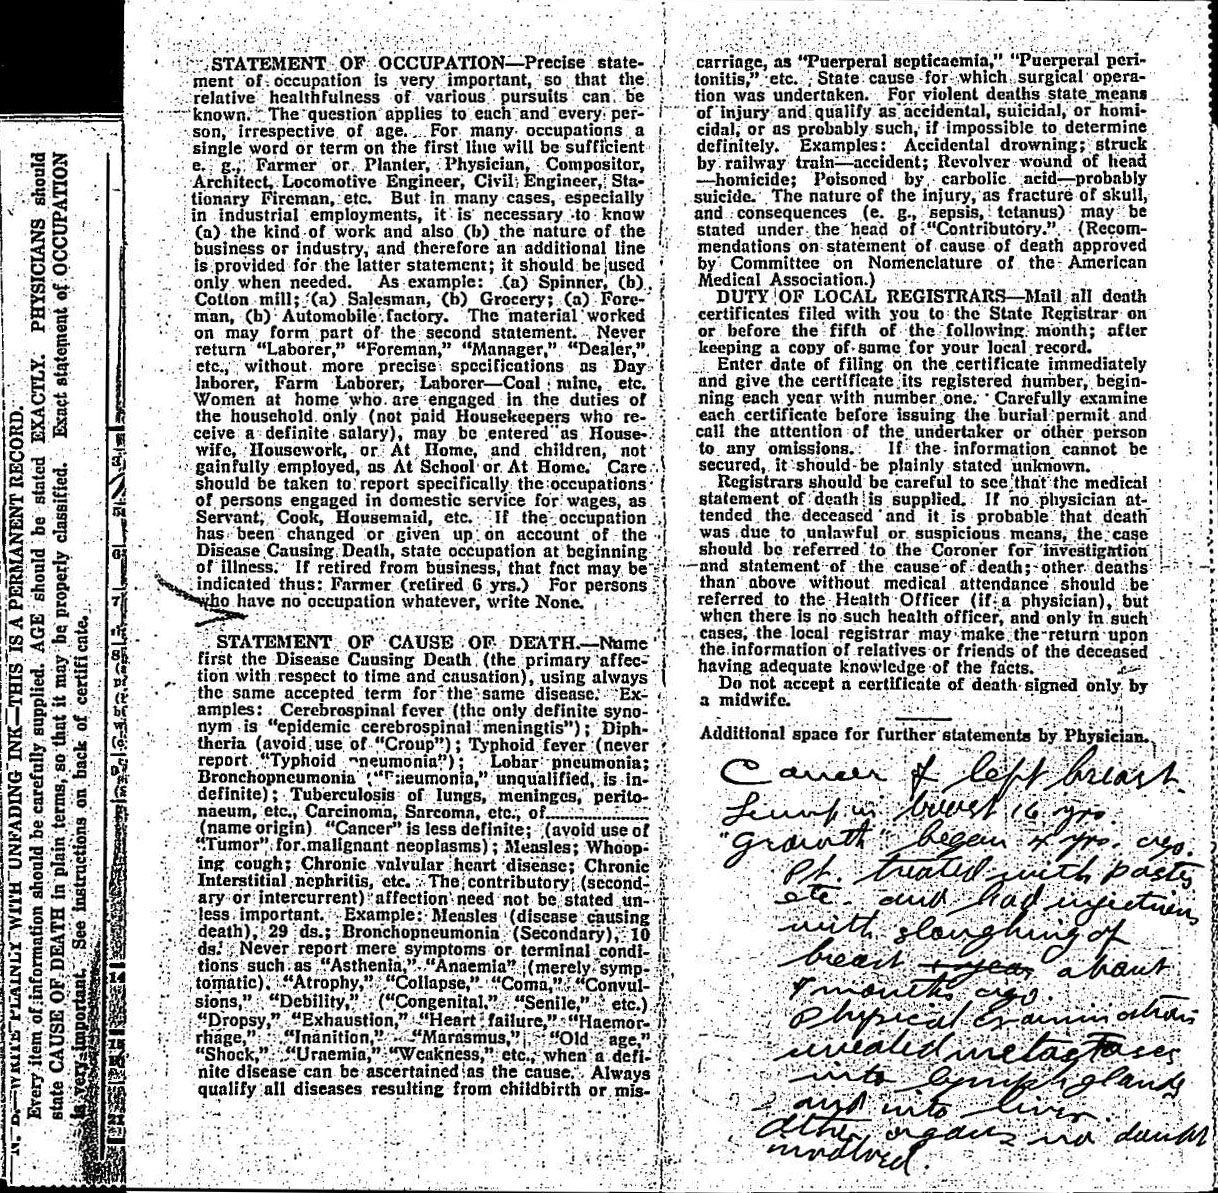 STATEMENT OF OCCUPATION—Precise state-
ment of occupation is very important, so that the
relative healthfulness of various pursuits can be
known. The question applies to each and every per-
son, irrespective of age. For many occupations a
single word or term on the first line will be sufficient
e. g., Farmer or Planter, Physician, Compositor,
Architect, Locomotive Engineer, Civil Engineer, Sta-
tionary Fireman, etc. But in many cases, especially
in industrial employments, it is necessary to know
(a) the kind of work and also (b) the nature of the
business or industry, and therefore an additional line
is provided for the latter statement; it should be used
only when needed. As example: (a) Spinner, (b)
Cotton mill; (a) Salesman, (b) Grocery; (a) Fore-
man, (b) Automobile factory. The material worked
on may form part of the second statement. Never
return "Laborer," "Foreman," "Manager," "Dealer,"
etc., without more precise specifications as Day
laborer, Farm Laborer, Laborer—Coal mine, etc.
Women at home who are engaged in the duties of
the household only (not paid Housekeepers who re-
ceive a definite salary), may be entered as House-
wife, Housework, or At Home, and children, not
gainfully employed, as At School or At Home. Care
should be taken to report specifically the occupations
of persons engaged in domestic service for wages, as
Servant, Cook, Housemaid, etc. If the occupation
has been changed or given up on account of the
Disease Causing Death, state occupation at beginning
of illness. If retired from business, that fact may be
indicated thus: Farmer (retired 6 yrs.) For persons
who have no occupation whatever, write None.
STATEMENT OF CAUSE OF DEATH.—Name
first the Disease Causing Death (the primary affec-
tion with respect to time and causation), using always
the same accepted term for the same disease. Ex-
amples: Cerebrospinal fever (the only definite syno-
nym is "epidemic cerebrospinal meningtis"); Diph-
theria (avoid use of "Croup"); Typhoid fever (never
report "Typhoid pneumonia"); Lobar pneumonia;
Bronchopneumonia ("Pneumonia," unqualified, is in-
definite); Tuberculosis of lungs, meninges, perito-
naeum, etc., Carcinoma, Sarcoma, etc., of..............
(name origin) "Cancer" is less definite; (avoid use of
"Tumor" for malignant neoplasms); Measles; Whoop-
ing cough; Chronic valvular heart disease; Chronic
Interstitial nephritis, etc. The contributory (second-
ary or intercurrent) affection need not be stated un-
less important. Example: Measles (disease causing
death), 29 ds.; Bronchopneumonia (Secondary), 10
ds. Never report mere symptoms or terminal condi-
tions such as "Asthenia," "Anaemia" (merely symp-
tomatic), "Atrophy," "Collapse," "Coma," "Convul-
sions," "Debility," ("Congenital," "Senile," etc.)
"Dropsy," "Exhaustion," "Heart failure," "Haemor-
rhage," "Inanition," "Marasmus," "Old age,"
"Shock," "Uraemia," "Weakness," etc., when a defi-
nite disease can be ascertained as the cause. Always
qualify all diseases resulting from childbirth or mis-
carriage, as "Puerperal septicaemia," "Puerperal peri-
tonitis," etc. State cause for which surgical opera-
tion was undertaken. For violent deaths state means
of injury and qualify as accidental, suicidal, or homi-
cidal, or as probably such, if impossible to determine
definitely. Examples: Accidental drowning; struck
by railway train—accident; Revolver wound of head
—homicide; Poisoned by carbolic acid—probably
suicide. The nature of the injury, as fracture of skull,
and consequences (e. g., sepsis, tetanus) may be
stated under the head of "Contributory." (Recom-
mendations on statement of cause of death approved
by Committee on Nomenclature of the American
Medical Association.)
DUTY OF LOCAL REGISTRARS—Mail all death
certificates filed with you to the State Registrar on
or before the fifth of the following month; after
keeping a copy of same for your local record.
Enter date of filing on the certificate immediately
and give the certificate its registered number, begin-
ning each year with number one. Carefully examine
each certificate before issuing the burial permit and
call the attention of the undertaker or other person
to any omissions. If the information cannot be
secured, it should be plainly stated unknown.
Registrars should be careful to see that the medical
statement of death is supplied. If no physician at-
tended the deceased and it is probable that death
was due to unlawful or suspicious means, the case
should be referred to the Coroner for investigation
and statement of the cause of death; other deaths
than above without medical attendance should be
referred to the Health Officer (if a physician), but
when there is no such health officer, and only in such
cases, the local registrar may make the return upon
the information of relatives or friends of the deceased
having adequate knowledge of the facts.
Do not accept a certificate of death signed only by
a midwife.
Additional space for further statements by Physician.
Cancer of left breast.
Lump in breast 16 yrs.
"Growth" began 4 yrs. ago.
Pt. treated with pastes
etc. and had injections
with sloughing of
breast 1 year about
9 months ago.
Physical examination
revealed metastases
into lymph glands
and into liver.
Other organs no doubt
involved.
N. B.—WRITE PLAINLY WITH UNFADING INK—THIS IS A PERMANENT RECORD.
Every item of information should be carefully supplied. AGE should be stated EXACTLY. PHYSICIANS should
state CAUSE OF DEATH in plain terms, so that it may be properly classified. Exact statement of OCCUPATION
is very important. See instructions on back of certificate.